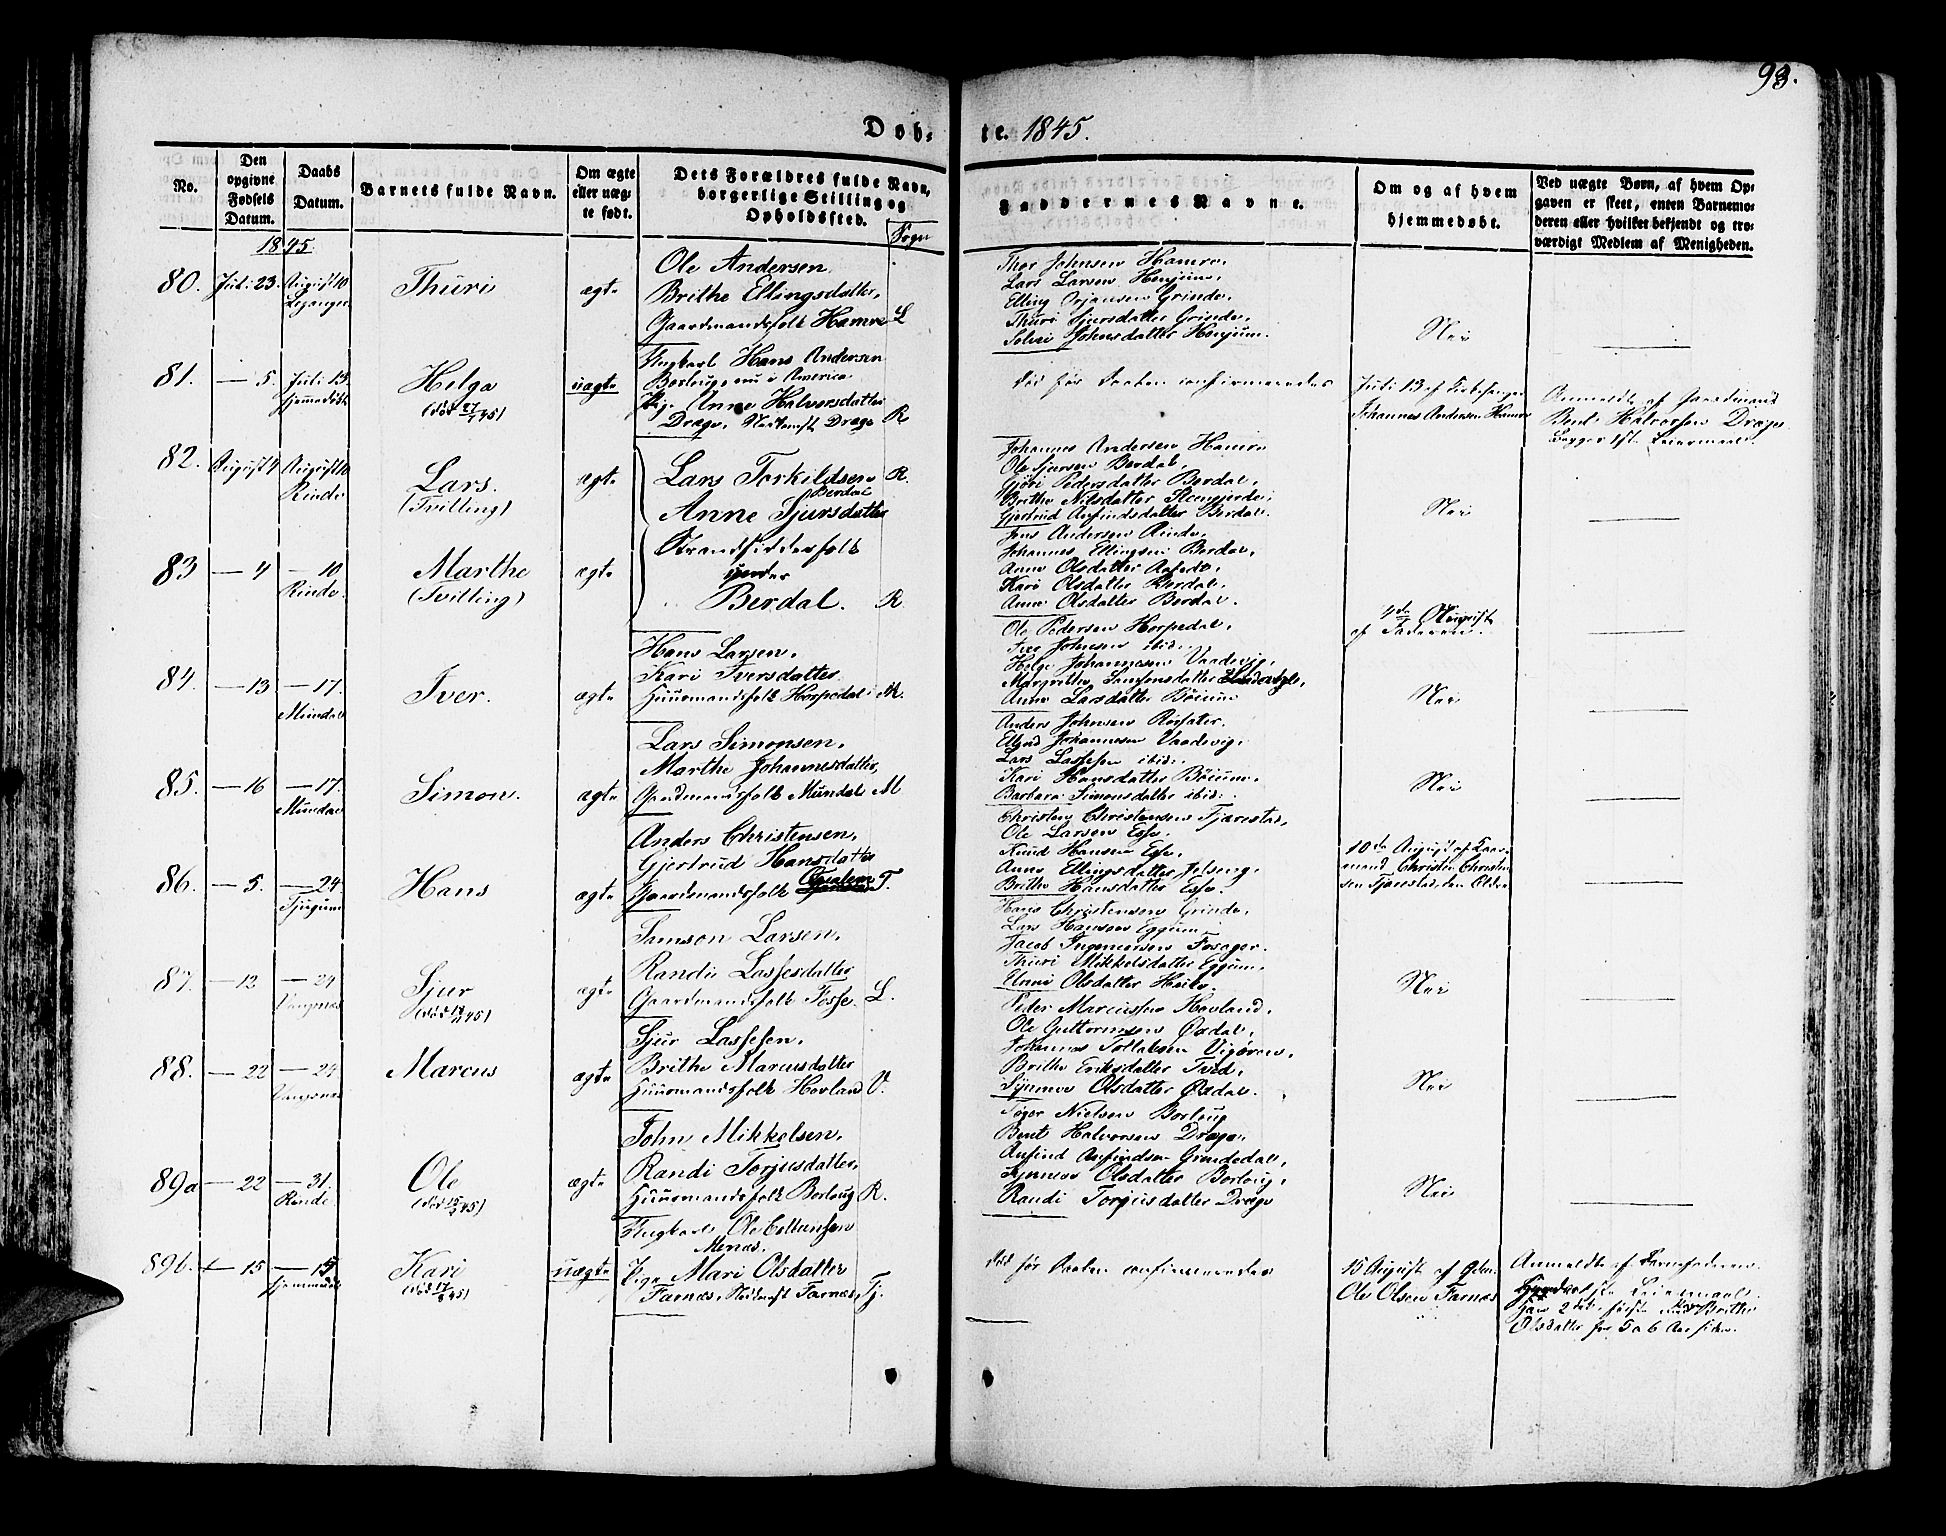 93.
Døb- te. 1845.
No.
Den opgivne Fødsels Datum.
Daabs Datum.
Barnets fulde Navn.
Om ægte eller uægte født.
Dets Forældres fulde Navn, borgerlige Stilling og Opholdssted.
Sogn
Faddernes Navne.
Om og af hvem hjemmedøbt.
Ved uægte Børn, af hvem Opgaven er skeet, enten Barnemoderen eller hvilket bekjendt og troværdigt Medlem af Menigheden.
1845.
80. Juli 23. August 10 Thuri ægte
Ole Andersen
Brithe Ellingsdatter,
Gaardmandsfolk Hamre L
Thor Johnsen Hamre,
Lars Larsen Henjum,
Elling Orjansen Grinde,
Thuri Sjursdatter Grinde,
Johnsdatter Henjum.
Nei
81. — 5. Juli 13. Hjemmedøbt Helga uægte
Ungkarl Hans Andersen
Borlaug, nu i America
Pige Anne Halvorsdatter
Dræge, Drægo R
død før Daaben confirmeredes
Juli 13 af
Johannes Andersen Hamre
Anmeldt af Gaardmand
Bent Halvorsen Drægo.
Begges 1ste Leiermaal.
82. August 4 August 10 Rinde Lars. (Tvilling) ægte
Lars Torkildsen R.
Berdal
Anne Sjursdatter
Johannes Andersen Hamre
Ole Sjursen Berdal,
Gjöri Pedersdatter Berdal,
Brithe Nilsdatter
Gjertrud Anfindsdatter Berdal.
Nei
83 — 4 — 10 Rinde. Marthe (Tvilling) ægte
Strandsidderfolk
under
Berdal. R
Jens Andersen Rinde,
Johannes Ellingsen Berdal,
Anne Olsdatter
Kari Olsdatter Berdal,
Anne Olsdatter Berdal.
4de August
af Faderen.
84. — 13 — 17. Mundal Iver. ægte
Hans Larsen,
Kari Iversdatter
Huusmandsfolk Horpedal M.
Ole Pedersen Horpedal,
Iver Johnsen ibid.
Helge Johannesen
Margrethe Samsonsdatter
Anne Larsdatter Böium
Nei
85. — 16 — 17. Mundal Simon. ægte
Lars Simonsen,
Marthe Johannesdatter,
Gaardmandsfolk Mundal M
Anders Johnsen
Johannesen
Lars Lassesen ibid.
Kari Hansdatter Böium,
Barbara Simonsdatter ibid.
Nei
86. — 5. — 24 Tjugum Hans ægte
Anders Christensen,
Gjertrud Hansdatter
Gaardmandsfolk T.
Christen Christensen Tjærestad,
Ole Larsen Esse,
Knud Hansen Esse,
Anne Ellingsdatter
Brithe Hansdatter Esse.
10de August af
mand Christen Christen-
sen Tjærestad, den Eldre
87. — 12 — 24 Vangsnæs Sjur ægte
Samson Larsen,
Randi Lassesdatter
Gaardmandsfolk Fosse. L.
Hans Christensen Grinde,
Lars Hansen Eggum
Jacob Ingemansen
Thuri Mikkelsdatter Eggum,
Unni Olsdatter
Nei
88. — 22 — 24 Vangsnæs Marcus ægte
Sjur Lassesen,
Brithe Marcusdatter
Huusmandsfolk Hovland V.
Peder Marcussen Hovland,
Ole Guttormsen
Johannes Tollaksen
Brithe Eriksdatter Tved,
Synneve Olsdatter
Nei
89a — 22 — 31. Rinde. Ole ægte
John Mikkelsen,
Randi Torjusdatter,
Huusmandsfolk Borlaug R.
Nielsen Borlaug
Bent Halvorsen Drægo,
Anfind Anfindsen Grindedal,
Synneve Olsdatter Borlaug,
Randi Torjusdatter Drægo
Nei
89b. — 15 — 15. Hjemmedøbt Kari uægte
Ungkarl Ole
Pige Mari Olsdatter
Farnæs, Farnæs, Tj.
død før Daaben confirmeredes
15 August af Gdm.
Ole Olsen Farnæs
Anmeldt af Barnefaderen.
Leiermaal.
2det, første med Brithe
Olsdatter for 5 a 6 Aar siden.